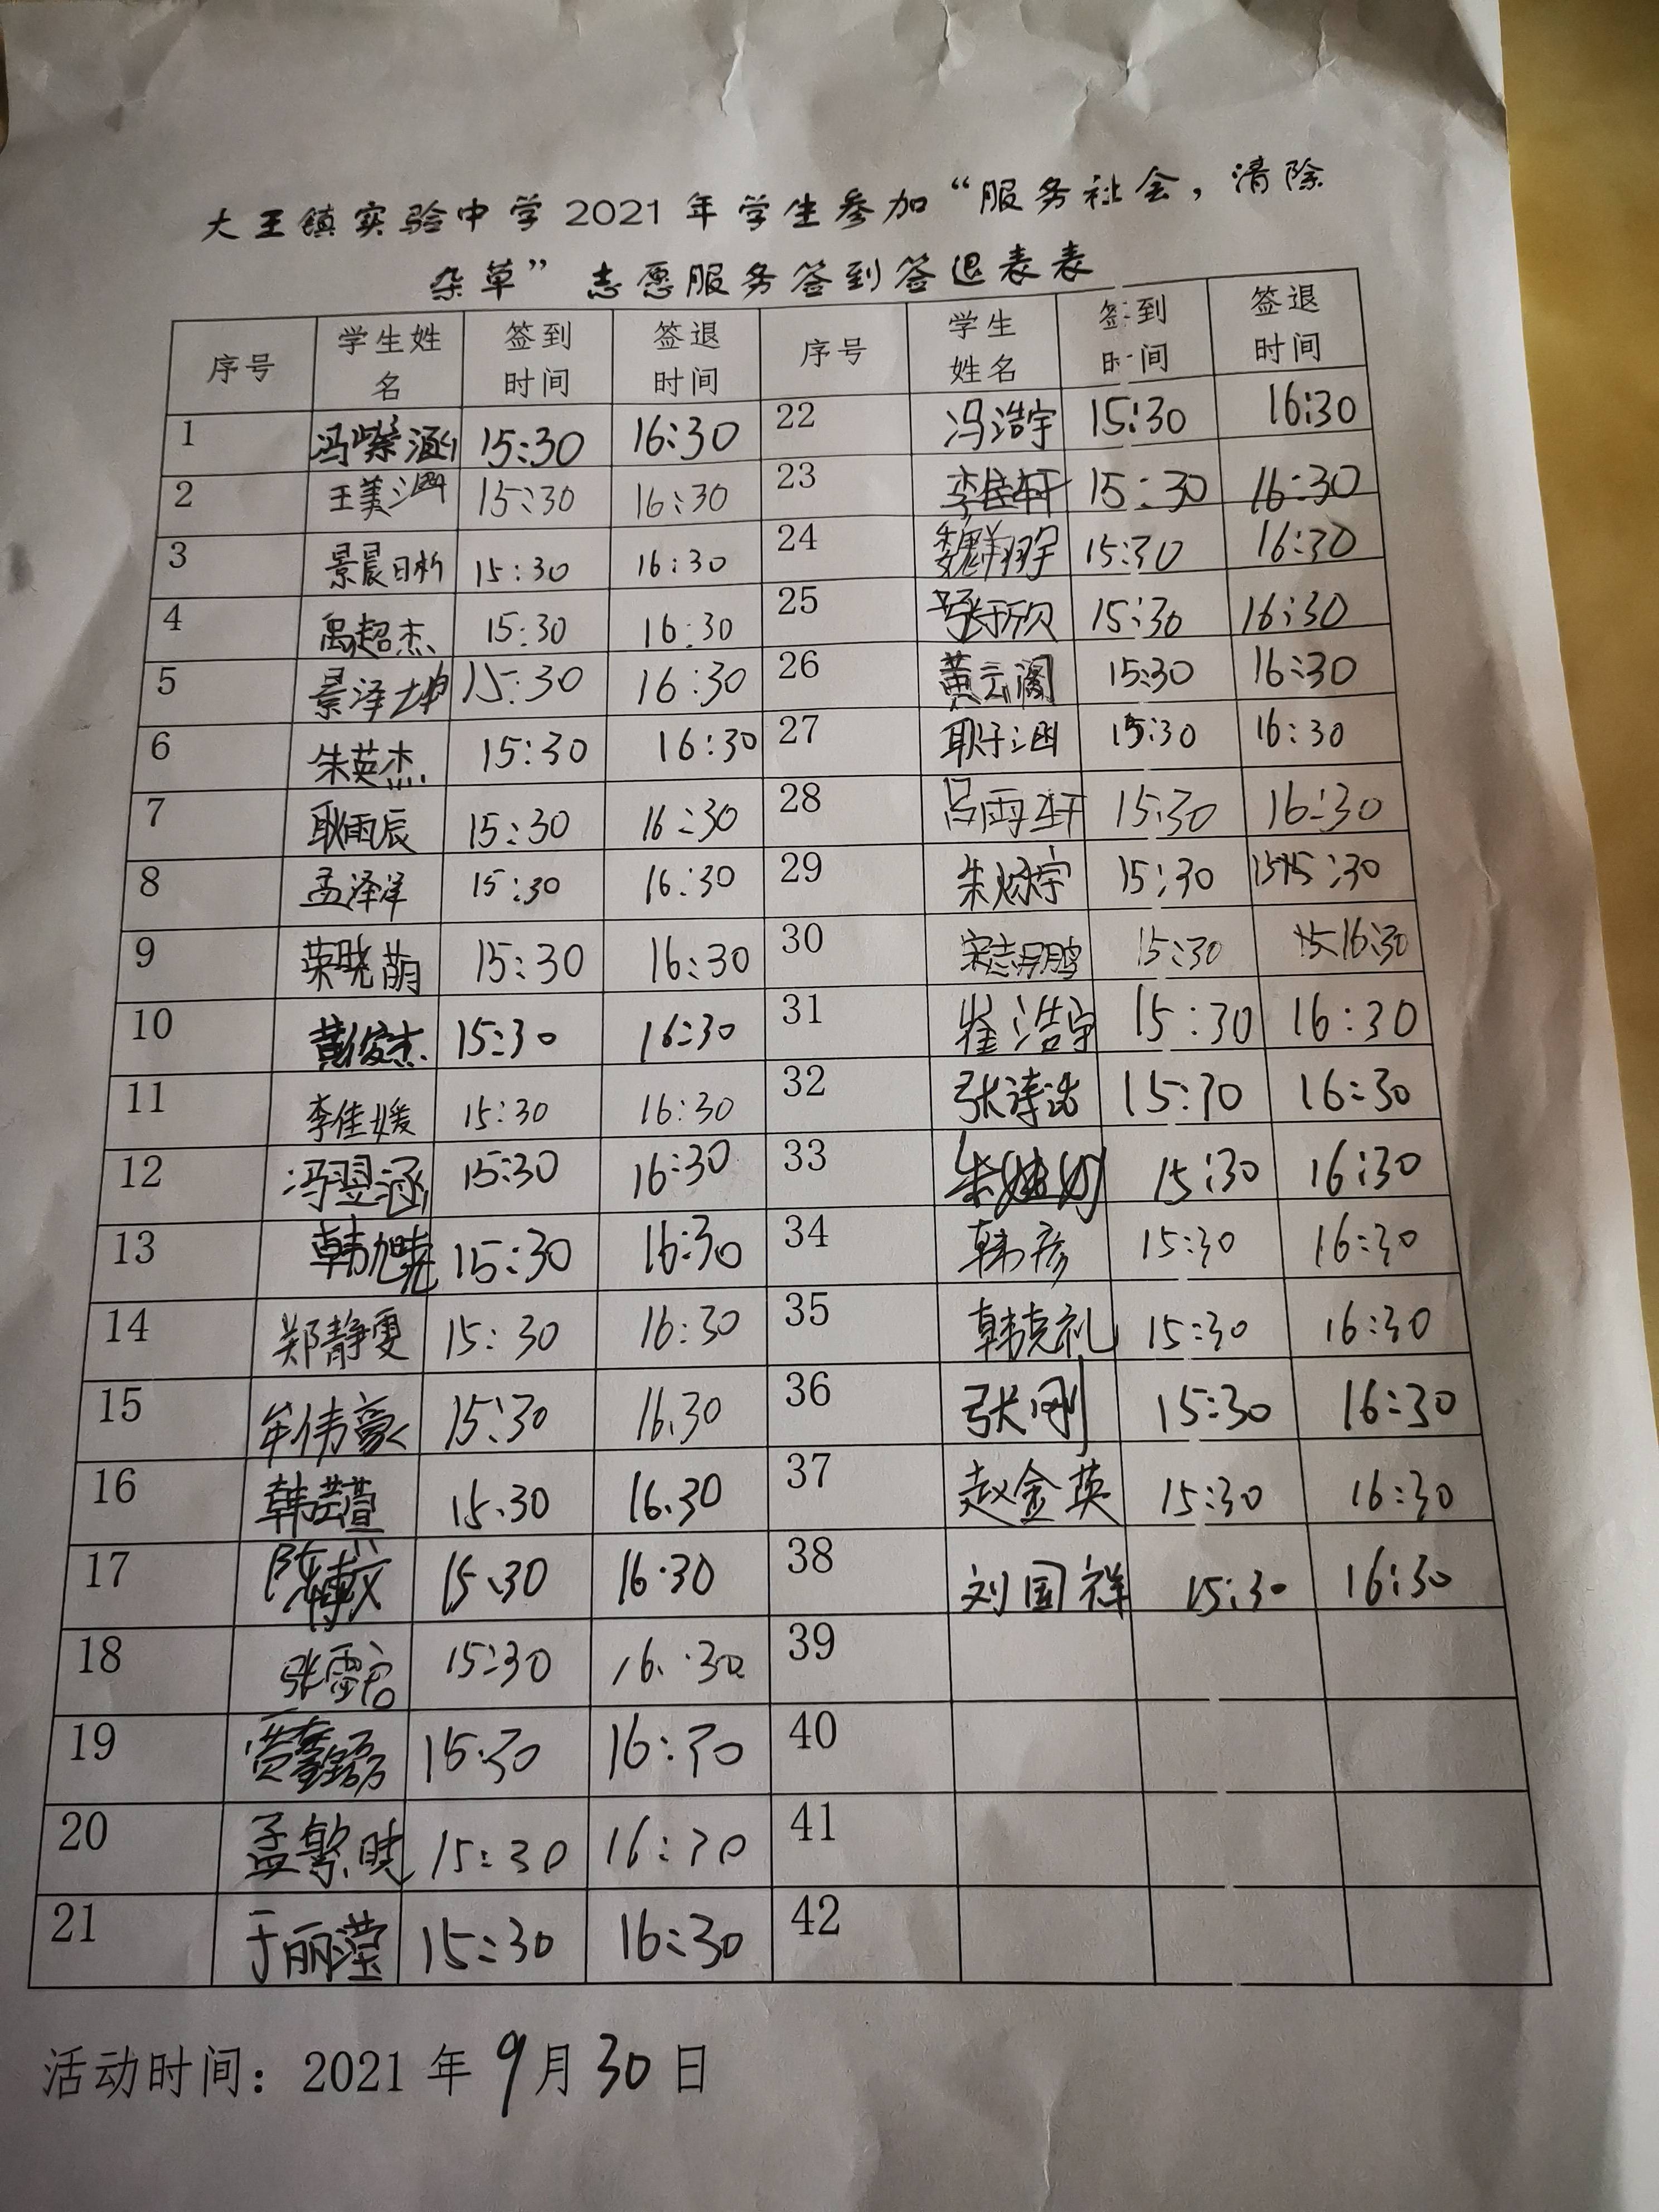 大王镇实验中学2021年学生参加“服务社会，清除
杂草”志愿服务签到签退表表
序号 学生姓名 签到时间 签退时间 序号 学生姓名 签到时间 签退时间
1 冯紫涵 15:30 16:30 22 冯浩宇 15:30 16:30
2 王美涵 15:30 16:30 23 李佳轩 15:30 16:30
3 景晨晰 15:30 16:30 24 魏翔宇 15:30 16:30
4 禹超杰 15:30 16:30 25 15:30 16:30
5 景泽坤 15:30 16:30 26 黄云阁 15:30 16:30
6 朱英杰 15:30 16:30 27 耿子涵 15:30 16:30
7 耿雨辰 15:30 16:30 28 吕雨轩 15:30 16:30
8 孟泽洋 15:30 16:30 29 朱焕宇 15:30 :30
9 荣晓萌 15:30 16:30 30 宋志鹏 15:30 16:30
10 彭俊杰 15:30 16:30 31 崔浩宇 15:30 16:30
11 李佳媛 15:30 16:30 32 张诗浩 15:30 16:30
12 冯翌涵 15:30 16:30 33 15:30 16:30
13 韩旭尧 15:30 16:30 34 韩彦 15:30 16:30
14 郑静雯 15:30 16:30 35 韩克礼 15:30 16:30
15 牟伟豪 15:30 16.30 36 张刚 15:30 16:30
16 韩芸萱 15.30 16.30 37 赵金英 15:30 16:30
17 15.30 16.30 38 刘国祥 15:30 16:30
18 15:30 16:30 39
19 15.30 16:30 40
20 孟繁晓 15:30 16:30 41
21 于丽滢 15:30 16:30 42
活动时间：2021年9月30日